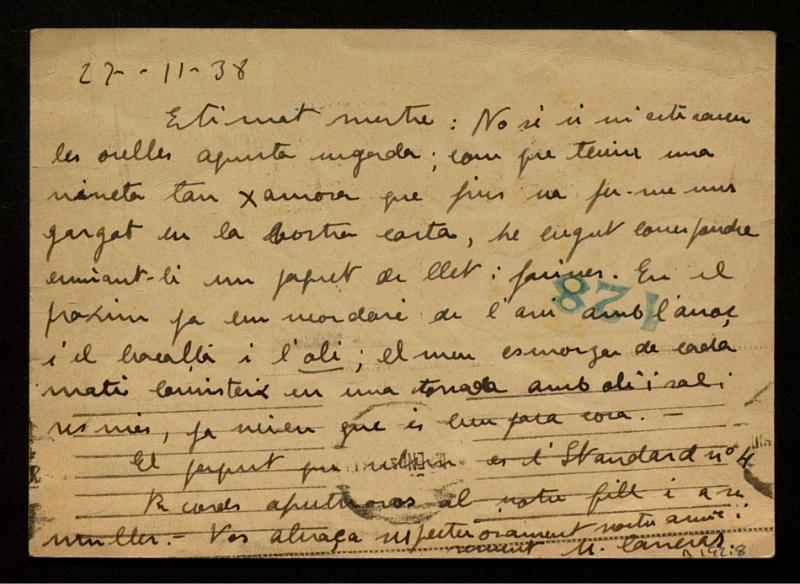 27-11-38
Estimat mestre: No sé si m'estirareu
les orelles aquesta vegada; com que teniu una
nineta tan xamosa que fins va fer-me un
gargot en la vostra carta, he cregut correspondre
enviant-li un paquet de llet i farines. En el
pròxim ja em recordaré de l'avi amb l'arroç
i el bacallà i l'oli; el meu esmorzar de cada
matí consisteix en una torrada amb oli i sal i
res més, ja veieu que és ben poca cosa. -
El paquet que és l'Standard nº 4
Records afectuosos al vostre fill i a sa
muller. - Vos abraça respectuosament vostre amic
M.
128
R. 192.8